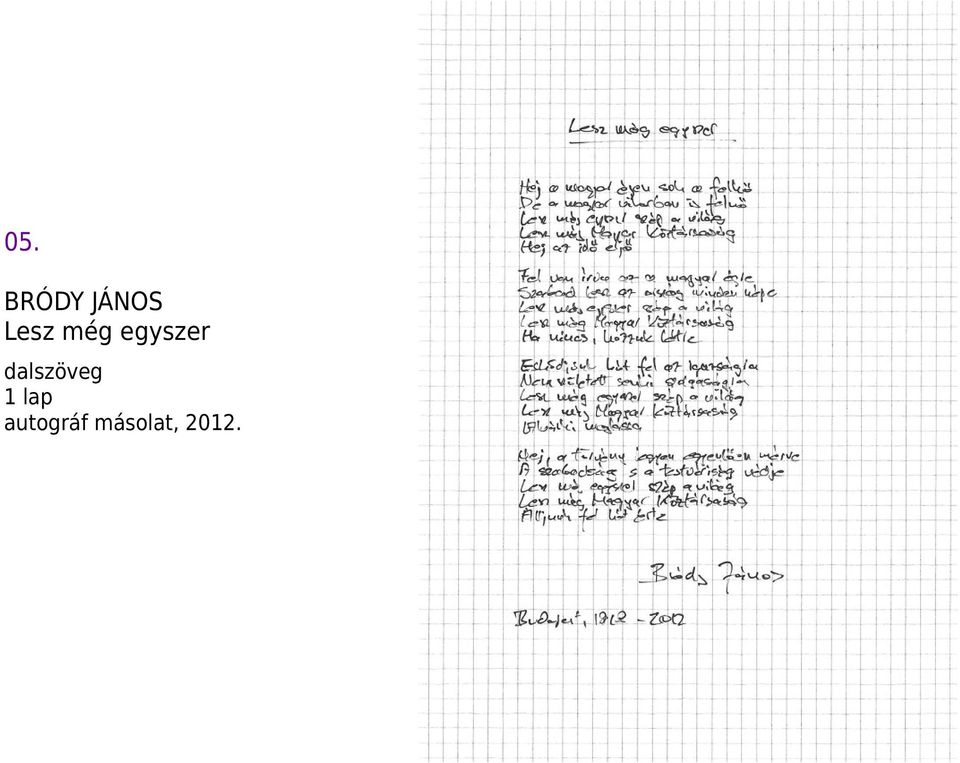 05.
BRÓDY JÁNOS
Lesz még egyszer
dalszöveg
1 lap
autográf másolat, 2012.
Lesz még egyszer
Hej a magyar égen sok a felhő
De a magyar viharban is felnő
Lesz még egyszer szép a világ
Lesz még Magyar Köztársaság
Hej az idő eljő
Fel van írva az a magyar égre
Szabad lesz az ország minden népe
Lesz még egyszer szép a világ
Lesz még Magyar Köztársaság
Ha nincs, hozzuk létre
Esküdjünk hát fel az igazságra
Nem született senki szolgaságra
Lesz még egyszer szép a világ
Lesz még Magyar Köztársaság
Hej, a törvény legyen egyenlően mérve
A szabadság s a testvériség védje
Lesz még egyszer szép a világ
Lesz még Magyar Köztársaság
Álljunk fel hát érte
Bródy János
Budapest, - 2012